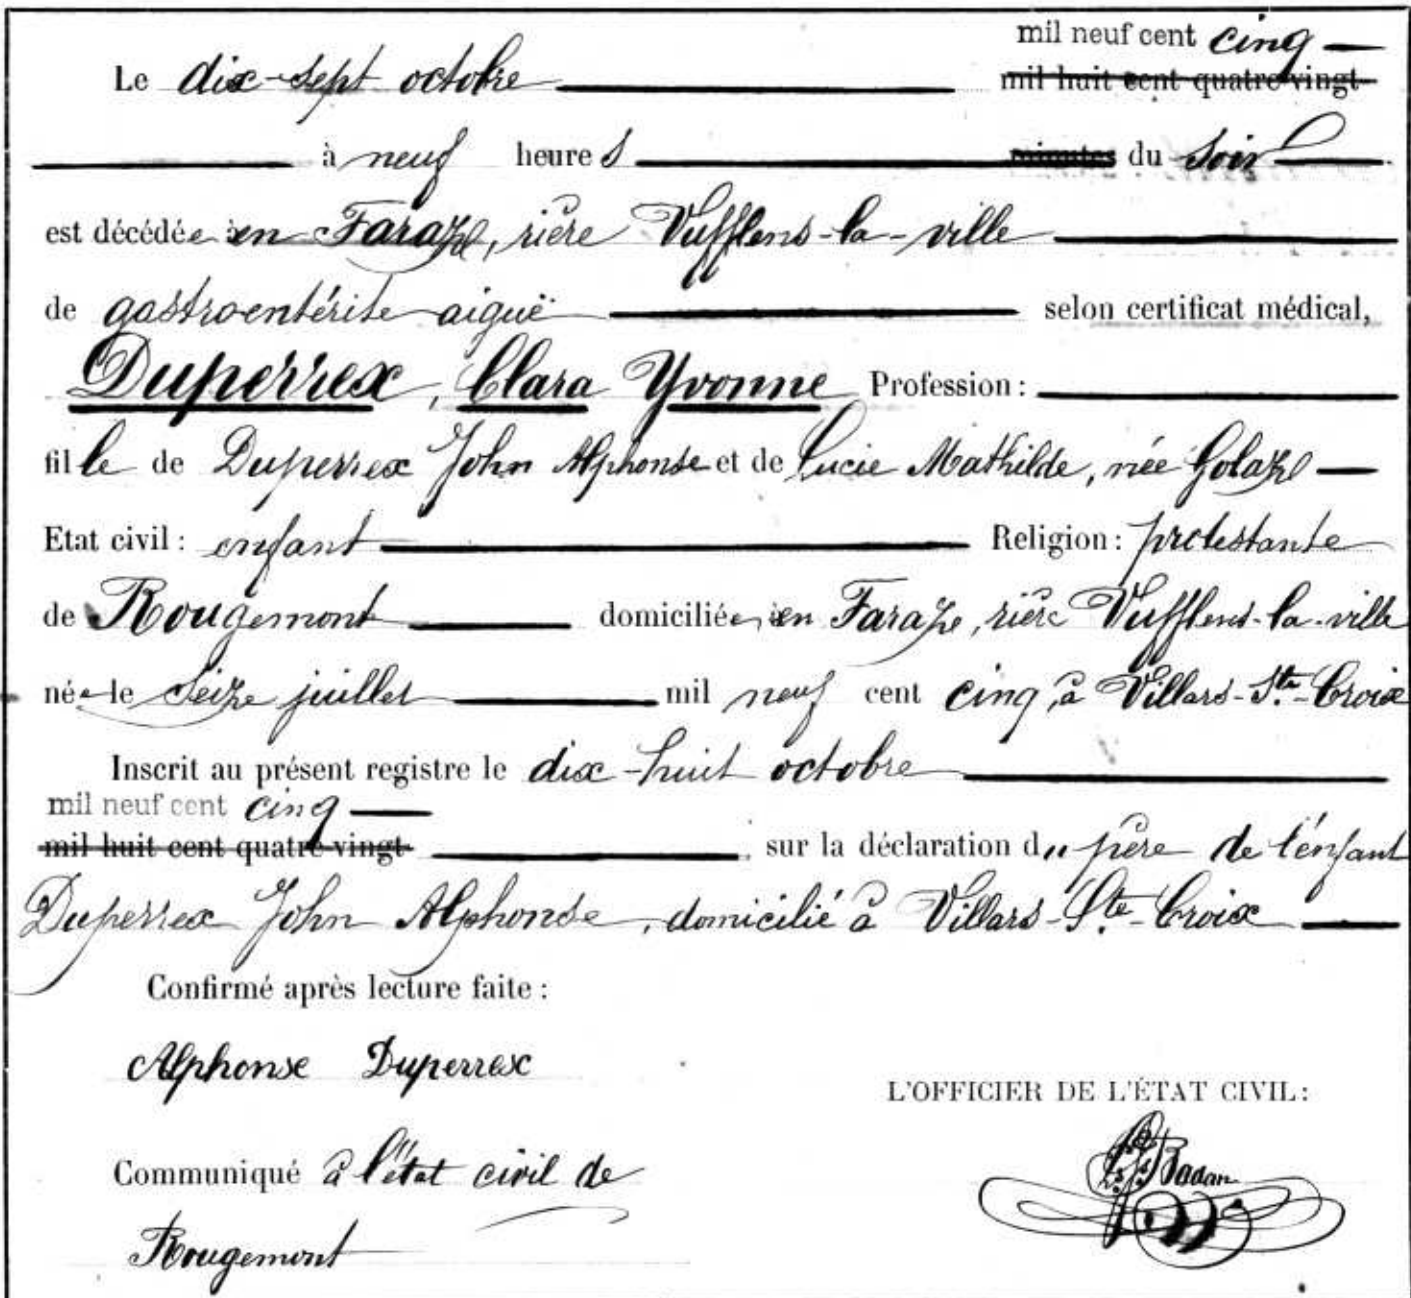 mil neuf cent cinq
Le dix-sept octobre mil huit cent quatre-vingt
à neuf heures minutes du soir
est décédée à en Faraze, rière Vufflens-la-ville
de gastroentérite aiguë selon certificat médical,
Duperrex, Clara Yvonne Profession :
fille de Duperrex John Alphonse et de Lucie Mathilde, née Golaze
Etat civil : enfant Religion : protestante
de Rougemont domiciliée, à en Faraze, rière Vufflens-la-ville
née le seize juillet mil neuf cent cinq, à Villars-Ste-Croix
Inscrit au présent registre le dix-huit octobre
mil neuf cent cinq
mil huit cent quatre-vingt , sur la déclaration du père de l'enfant
Duperrex John Alphonse, domicilié à Villars-Ste-Croix
Confirmé après lecture faite :
Alphonse Duperrex
L'OFFICIER DE L'ÉTAT CIVIL :
Communiqué à l'état civil de
Badan
Rougemont